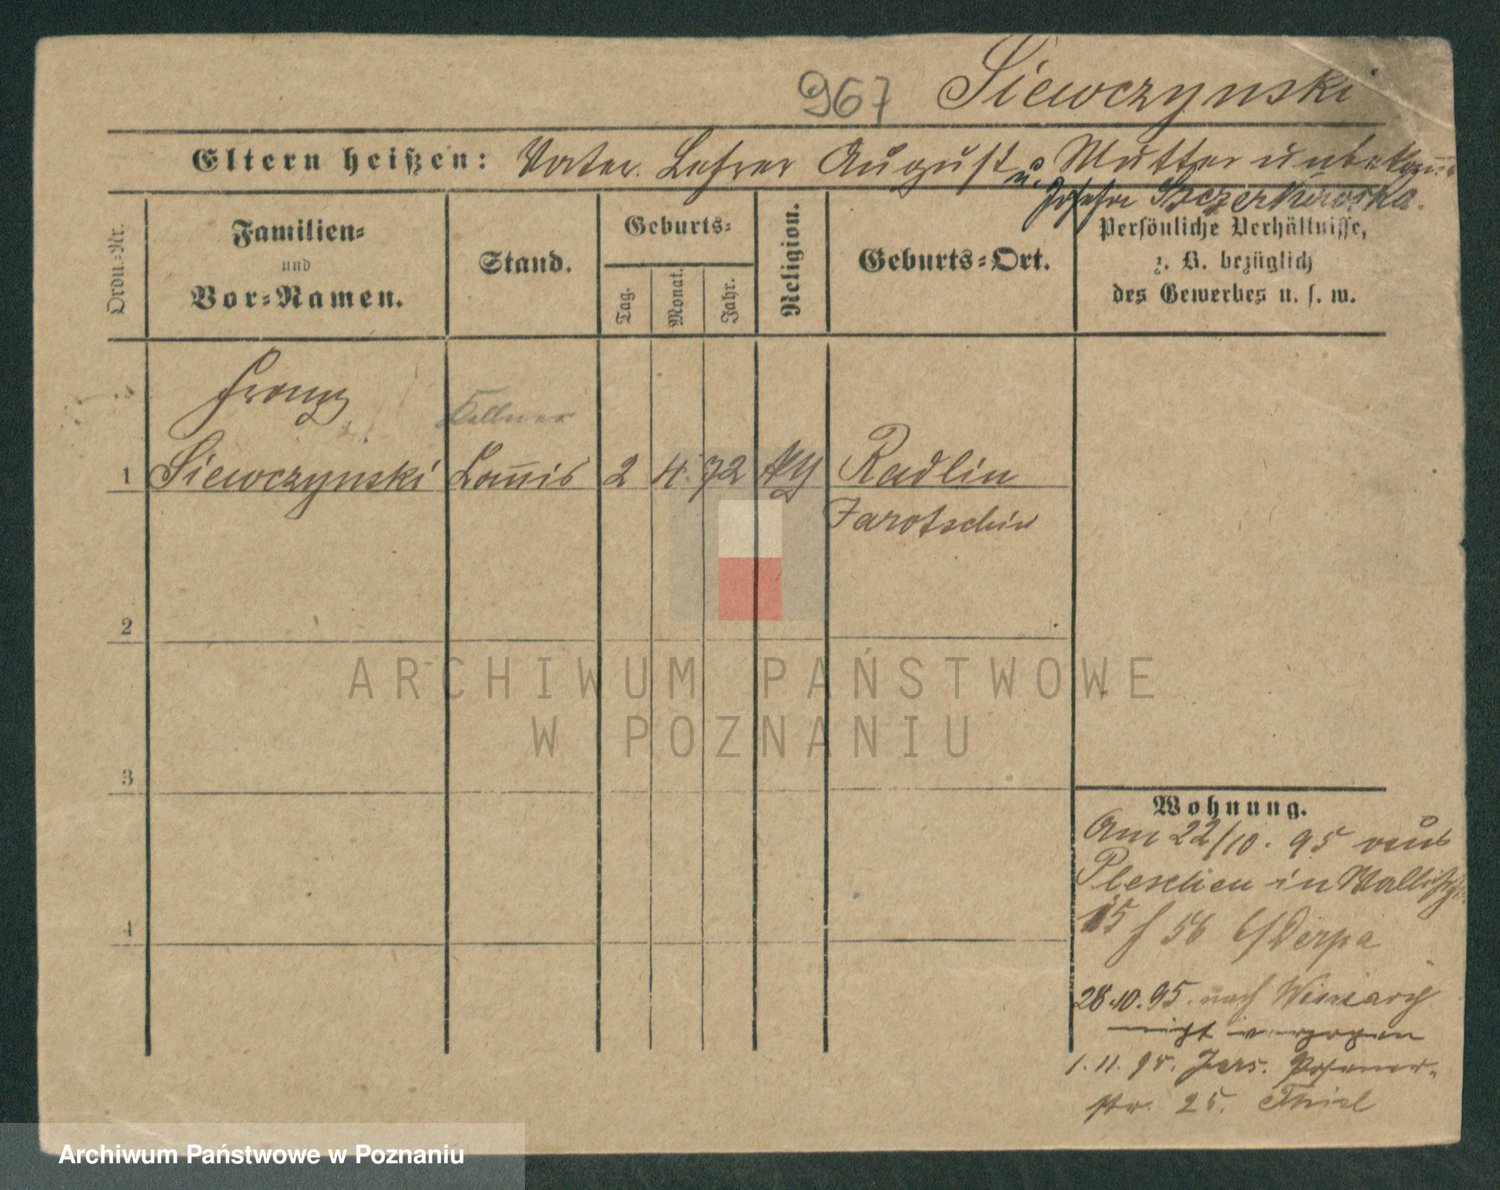 967 Siewczynski
Eltern heißen: Vater. Lehrer August u. Mutter unbekannt
Josefa
Ordn.-Nr.
Familien-
und
Vor-Namen.
Stand.
Geburts-
Tag.
Monat.
Jahr.
Religion.
Geburts-Ort.
Persönliche Verhältnisse,
z. B. bezüglich
des Gewerbes u. s. w.
Franz
Kellner
1 Siewczynski 2 4. 72 Radlin
Jarotschin
2
3
4
Wohnung.
Am 22/10. 95 aus
Pleschen in Wallisch
15 f 56 b/Derpa
28.10.95. nach
nicht verzogen
1.11.95. Jers. Posener-
str. 25. Thiel
ARCHIWUM PAŃSTWOWE
W POZNANIU
Archiwum Państwowe w Poznaniu